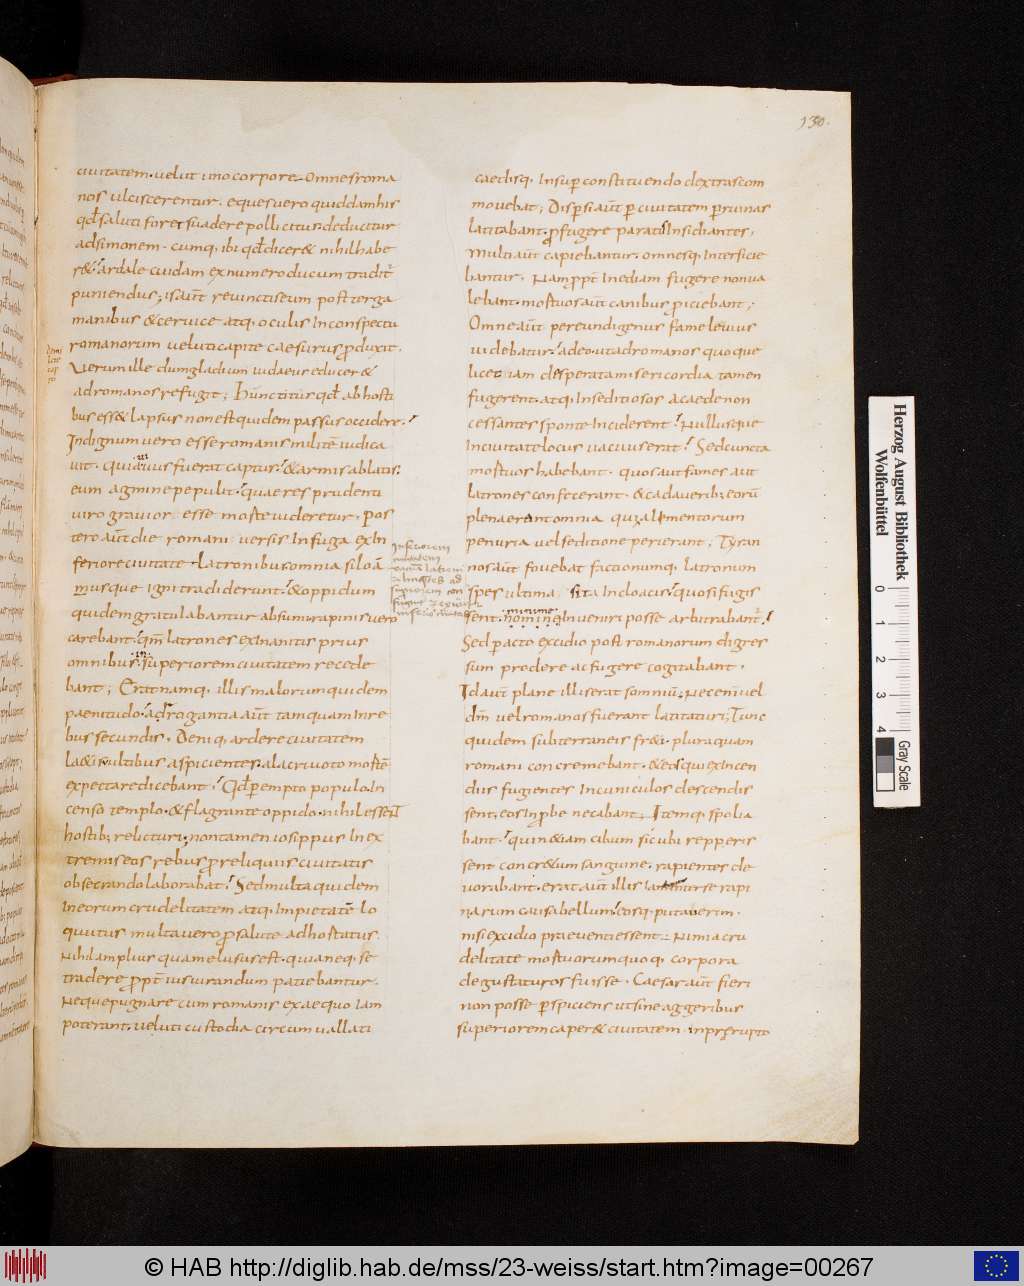 130.
ciuitatem. uelut uno corpore. Omnes roma
nos ulciscerentur. eques uero quiddam his
qđ saluti foret suadere pollicitus. deducitur
ad simonem. cumq; ibi qđ dicer& nihil habe
r&. ardale cuidam ex numero ducum tradit̃
puniendus; is aūt reuinctis eum post terga
manibus & ceruice atq; oculis In conspectu
romanorum ueluti capite caesurus ꝓduxit.
Verum ille dum gladium iudaeus educer&
ad romanos refugit; Hunc titus qđ ab hosti
bus ess& lapsus non est quidem passus occidere.
Indignum uero esse romanis militē iudica
uit. qui uiuus fuerat captus. & armis ablatis.
eum agmine pepulit. quae res prudenti
uiro grauior esse morte uideretur. Pos
tero aūt die romani uersis In fuga ex In
feriore ciuitate latronibus omnia siloā
musque Igni tradiderunt. & oppidum
quidem gratulabantur absumi rapinis uero
carebant. qm̄ latrones exinanitis prius
omnibus. In superiorem ciuitatem recede
bant; Erat namq; illis malorum quidem
paenitudo. adrogantia aūt tamquam In re
bus secundis. Deniq; ardere ciuitatem
la&is uultibus aspicientes. alacri uoto mortē
expectare dicebant. Qđ ꝑempto populo In
censo templo. & flagrante oppido. nihil essent
hostib; relicturi. non tamen iosippus In ex
tremis eos rebus ꝓ reliquiis ciuitatis
obsecrando laborabat. Sed multa quidem
In eorum crudelitatem atq; Impietatē lo
quutus multa uero ꝓ salute adhortatus.
Nihil amplius quam elusus est. quia neq; se
tradere ꝓpt̄ iusiurandum patiebantur.
Neque pugnare cum romanis ex aequo Iam
poterant. ueluti custodia circumuallati
Inferiorem
caedisq; Insuꝑ constituendo dextras com
mouebat; Disꝑsi aūt ꝑ ciuitatem ꝑ ruinas
latitabant. ꝓfugere paratis Insidiantes;
Multi aūt capiebantur. omnesq; Interficie
bantur. Nam ꝓpt̄ Inediam fugere non ua
lebant. mortuos aūt canibus ꝓiciebant;
Omne aūt pereundi genus fame leuius
uidebatur. adeo ut ad romanos quoque
licet iam desperata misericordia tamen
fugerent. atq; In seditiosos a caede non
cessantes sponte Inciderent. Nullusque
In ciuitate locus uacuus erat. Sed cuncta
mortuos habebant. quos aut fames aut
latrones confecerant. & cadauerib; eorū
plena erant omnia qui alimentorum
penuria uel seditione perierant; Tyran
nos aūt fouebat factionumq; latronum
spes ultima. sita In cloacis. quo si fugis
sent. minime Inueniri posse arbitrabant̃.
Sed peracto excidio post romanorum digres
sum prodere ac fugere cogitabant.
Id aūt plane illis erat somniū. Nec enī uel
dm̄ uel romanos fuerant latitaturi; Tunc
quidem subterraneis fr&i. plura quam
romani concremebant. & eos qui ex Incen
diis fugientes In cuniculos descendis
sent. eos Inꝓbe necabant. Itemq; spolia
bant. quin & iam cibum sicubi repperis
sent concr&um sanguine. rapientes de
uorabant. erat aūt illis Inter se rapi
narum causa bellum. eosq; putauerim.
nisi excidio praeuenti essent. Nimia cru
delitate mortuorum quoq; corpora
degustaturos fuisse. Caesar aūt fieri
non posse ꝑspiciens ut sine aggeribus
superiorem caper& ciuitatem. in prerupto
Herzog August Bibliothek
Wolfenbüttel
0 1 2 3 4
Gray Scale
© HAB http://diglib.hab.de/mss/23-weiss/start.htm?image=00267